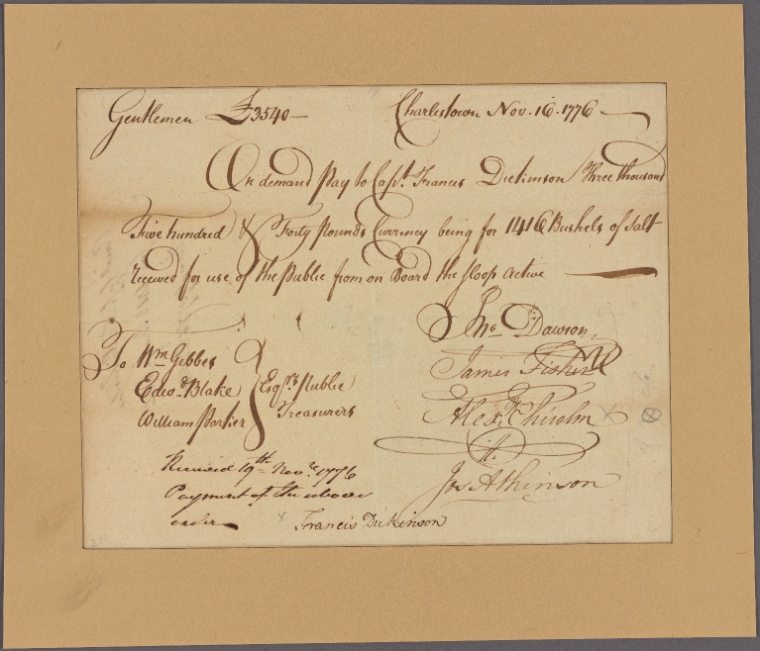 Gentlemen £3540 — Charlestown Nov. 16. 1776 —
On demand Pay to Capt. Francis Dickinson Three thousand
Five hundred & Forty Pounds Currency being for 1416 Bushels of Salt
received for use of the Public from on Board the sloop Active —
Jno. Dawson
To Wm Gibbes
Edwd. Blake
William Parker
Esqrs. Public
Treasurers
James Fisher
Alexr. Chisolm
Jos Atkinson
Received 19th Novr. 1776
Payment of the above
order
x Francis Dickinson